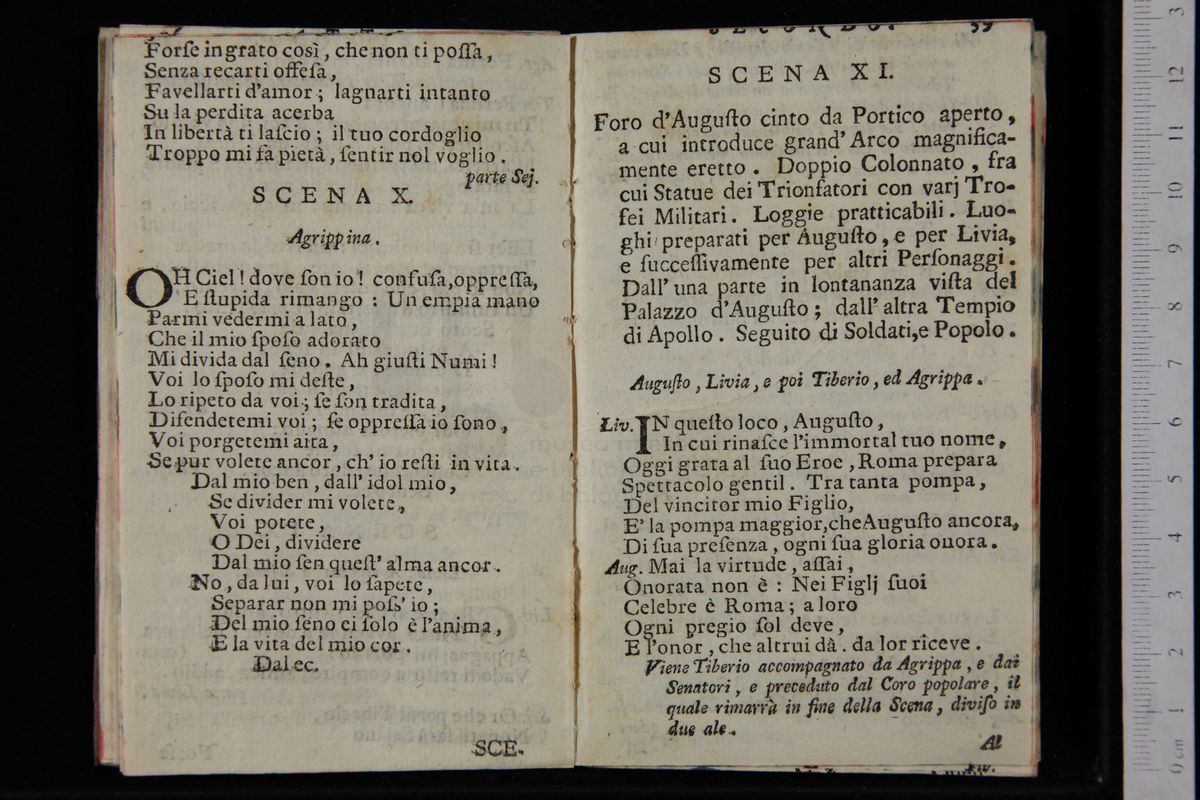 Forſe ingrato così, che non ti poſſa,
Senza recarti offeſa,
Favellarti d'amor; lagnarti intanto
Su la perdita acerba
In libertà ti laſcio; il tuo cordoglio
Troppo mi fa pietà, ſentir nol voglio.
parte Sej.
SCENA X.
Agrippina.
OH Ciel! dove ſon io! confuſa, oppreſſa,
E ſtupida rimango: Un empia mano
Parmi vedermi a lato,
Che il mio ſpoſo adorato
Mi divida dal ſeno. Ah giuſti Numi!
Voi lo ſpoſo mi deſte,
Lo ripeto da voi; ſe ſon tradita,
Difendetemi voi; ſe oppreſſa io ſono,
Voi porgetemi aita,
Se pur volete ancor, ch' io reſti in vita.
Dal mio ben, dall' idol mio,
Se divider mi volete,
Voi potete,
O Dei, dividere
Dal mio ſen queſt' alma ancor.
No, da lui, voi lo ſapete,
Separar non mi poſs' io;
Del mio ſeno ei ſolo è l'anima,
E la vita del mio cor.
Dal ec.
SCE-
SECONDO. 39
SCENA XI.
Foro d'Auguſto cinto da Portico aperto,
a cui introduce grand' Arco magnifica-
mente eretto. Doppio Colonnato, fra
cui Statue dei Trionfatori con varj Tro-
fei Militari. Loggie pratticabili. Luo-
ghi preparati per Auguſto, e per Livia,
e ſucceſſivamente per altri Perſonaggi.
Dall' una parte in lontananza viſta del
Palazzo d'Auguſto; dall' altra Tempio
di Apollo. Seguito di Soldati, e Popolo.
Auguſto, Livia, e poi Tiberio, ed Agrippa.
Liv. IN queſto loco, Auguſto,
In cui rinaſce l'immortal tuo nome,
Oggi grata al ſuo Eroe, Roma prepara
Spettacolo gentil. Tra tanta pompa,
Del vincitor mio Figlio,
E' la pompa maggior, che Auguſto ancora,
Di ſua preſenza, ogni ſua gloria onora.
Aug. Mai la virtude, aſſai,
Onorata non è: Nei Figlj ſuoi
Celebre è Roma; a loro
Ogni pregio ſol deve,
E l'onor, che altrui dà. da lor riceve.
Viene Tiberio accompagnato da Agrippa, e dai
Senatori, e preceduto dal Coro popolare, il
quale rimarrà in fine della Scena, diviſo in
due ale.
Al
0 cm 1 2 3 4 5 6 7 8 9 10 11 12 13